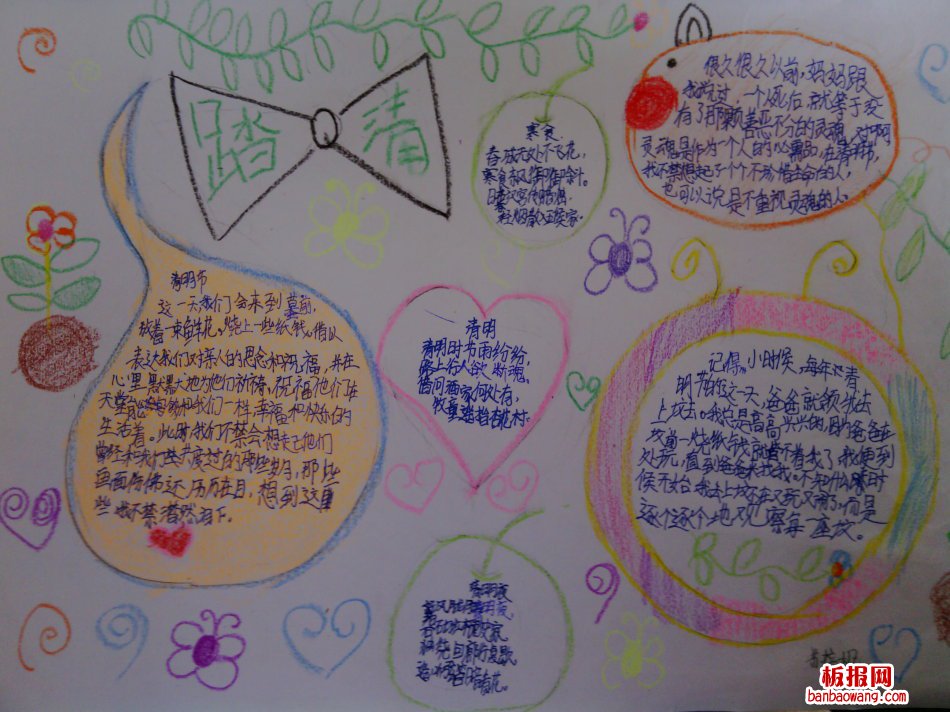 踏青
清明节
这一天,我们会来到墓前,
放着一束鲜花。烧上一些纸钱,借以
表达我们对亲人的思念和祝福,并在
心里默默地为他们祈祷,祝福他们在
天堂能够和我们一样,幸福和快乐的
生活着。此时,我们不禁会想起他们
曾经和我们共度过的那些岁月,那些
画面仿佛还历历在目,想到这里
些我不禁潸然泪下。
寒食
春城无处不飞花,
寒食东风御柳斜。
日暮汉宫传蜡烛,
轻烟散入五侯家。
清明
清明时节雨纷纷,
路上行人欲断魂,
借问酒家何处有,
牧童遥指杏花村。
清明夜
很久很久以前,妈妈跟
我说过,一个人死后,就等于变
有了那颗善恶不分的灵魂,对啊
灵魂是作为一个人的必需品,在清明节,
我不禁想起了个个不珍惜生命的人,
也可以说是不重视灵魂的人。
记得小时候,每年
明节的这一天,爸爸就领我去
上坟去。我总是高高兴兴的,因为爸爸在
坟前一烧纸钱就管不着我了,我便到
处玩,直到爸爸来找我。不知什么时
候开始,我去上坟不在又玩又闹了,而是
逐个逐个地观察每一座坟。
板报网
banbaowang.com